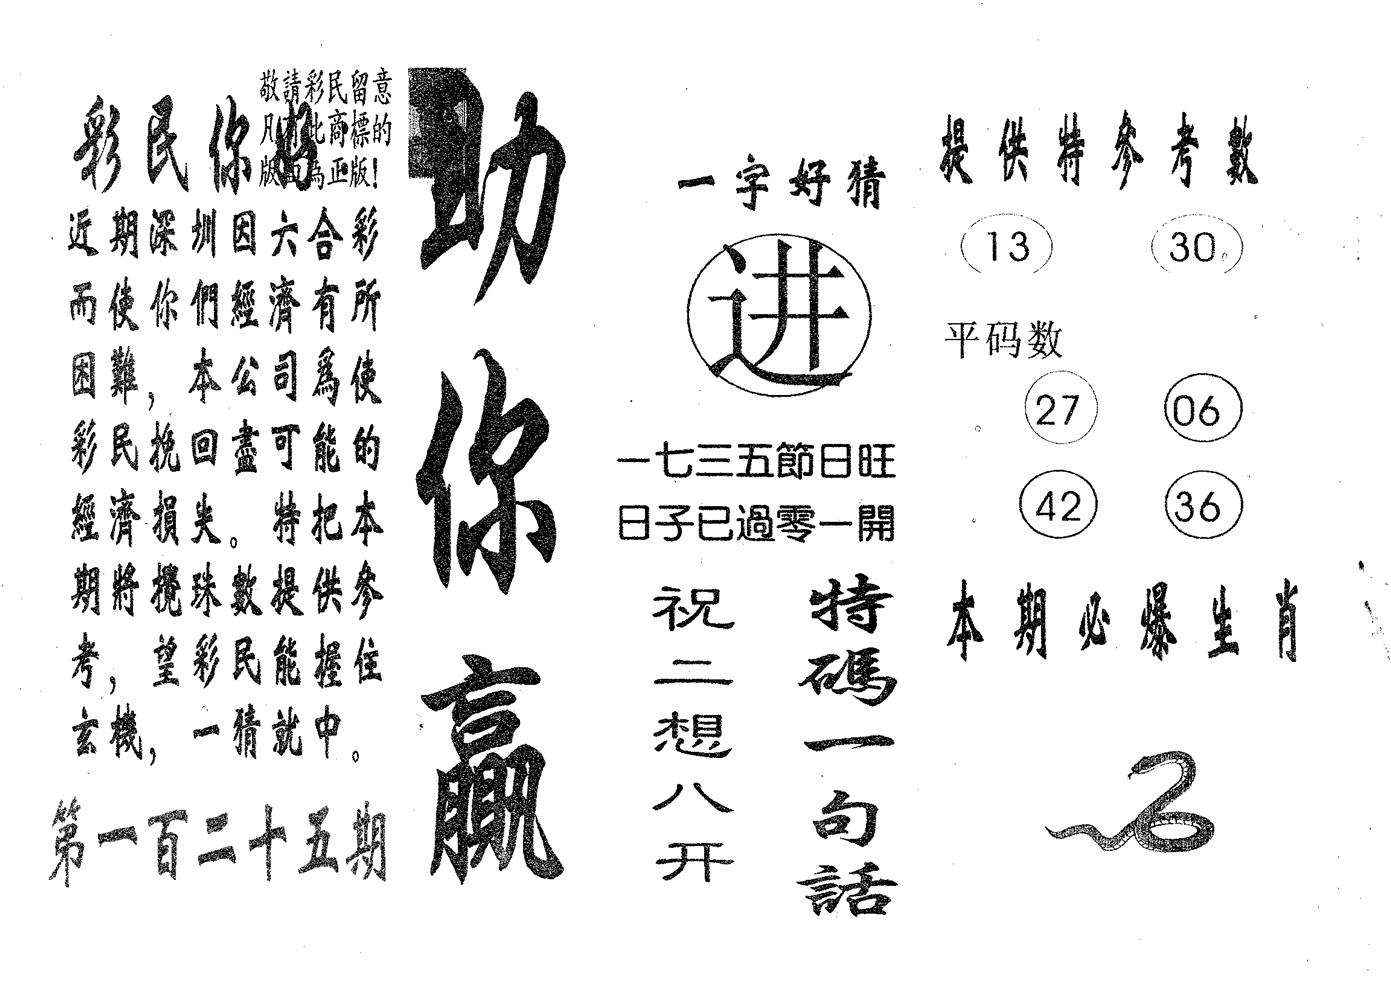 敬請彩民留意
凡有此商標的
版面為正版！
彩民你好
近期深圳因六合彩
而使你們經濟有所
困難，本公司爲使
彩民挽回盡可能的
經濟損失。特把本
期將攪珠數提供參
考，望彩民能握住
玄機，一猜就中。
第一百二十五期
助你贏
一字好猜
进
一七三五節日旺
日子已過零一開
特碼一句話
祝二想八开
提供特參考數
13 30
平码数
27 06
42 36
本期必爆生肖